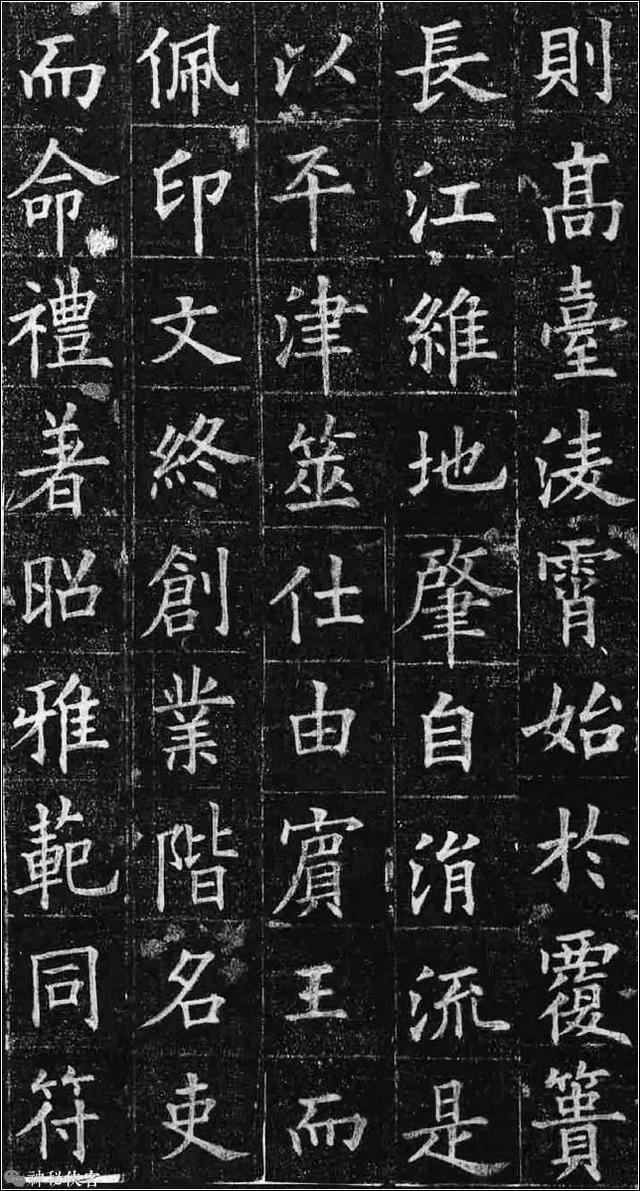 則高臺淩霄始於覆簣
長江維地肇自涓流是
以平津筮仕由賓王而
佩印文終創業階名吏
而命禮著昭雅範同符
神秘侠客